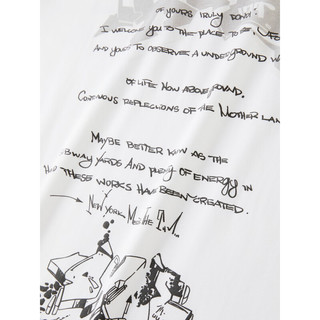 OF YOURS TRULY DONDI.
I WELCOME YOU TO THE PLACE TO BE, UFO
AND YOU? TO OBSERVE A UNDERGROUND W
OF LIFE NOW ABOVE GROUND.
CONTINOUS REFLECTIONS OF THE MOTHER LAN
MAYBE BETTER KNOW AS THE
BWAY YARDS AND PLENTY OF ENERGY IN
THESE WORKS HAVE BEEN CREATED.
NEW YORK MOVIE T.M.